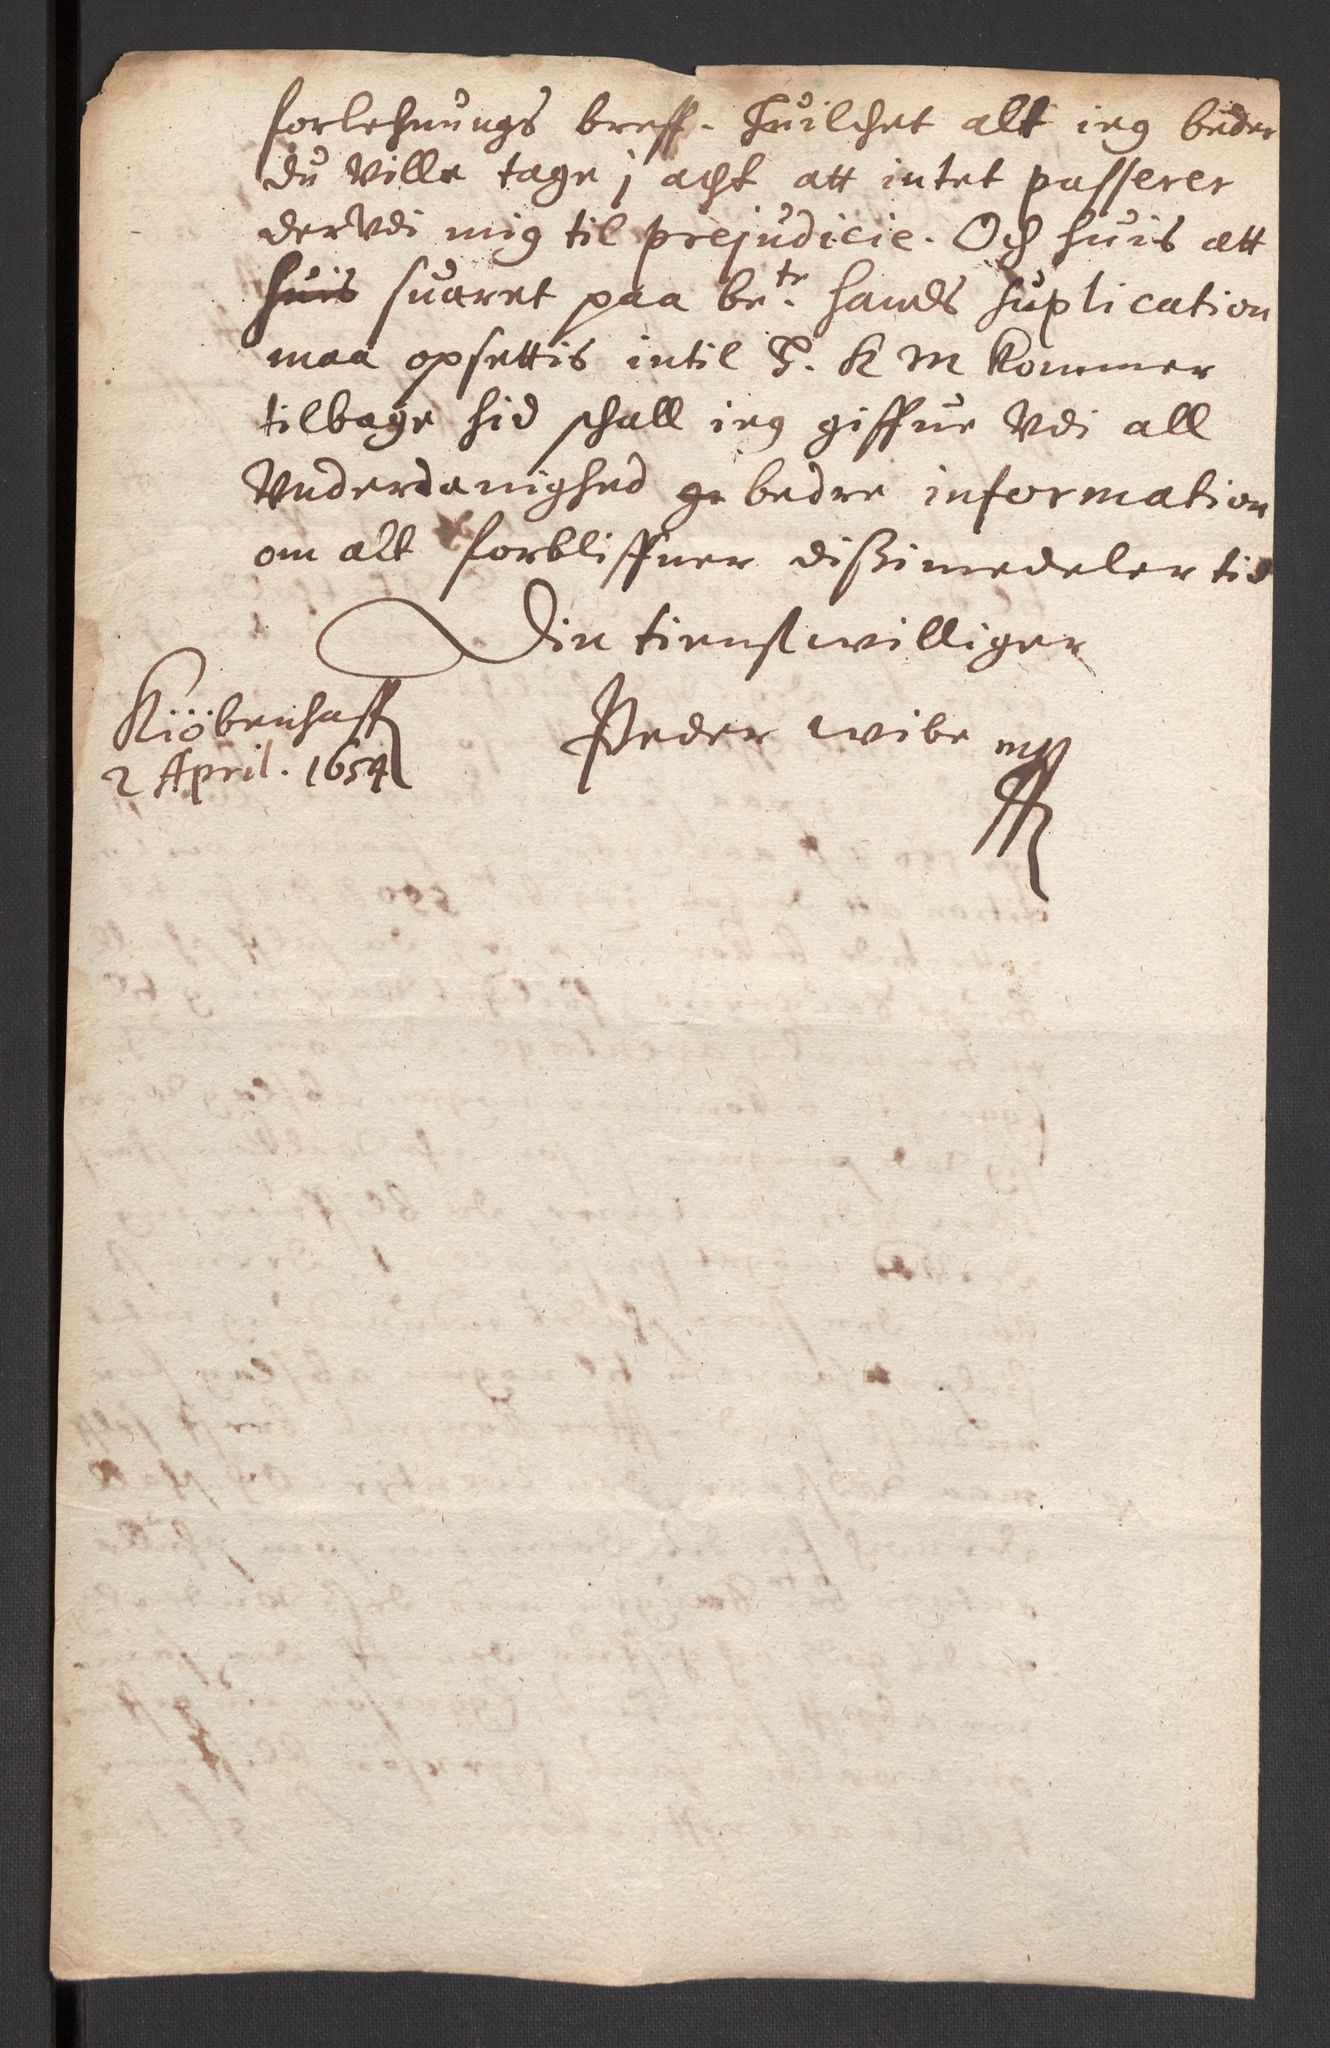 forlehnungs breff. Huilchet alt ieg beder
du Ville tage j acht att intet passerer
der Vdi mig til prejudicie. Och huis att
huis suaret paa be.te hands suplication
maa opsettis intil H. K M kommer
tilbage hid schall ieg giffue Vdi all
Vnderdanighed ge bedre information
om alt forbliffuer dissimedelertid
Din tienstwilliger
Kiöbenhaff
2 April. 1654
Peder wibe mpp